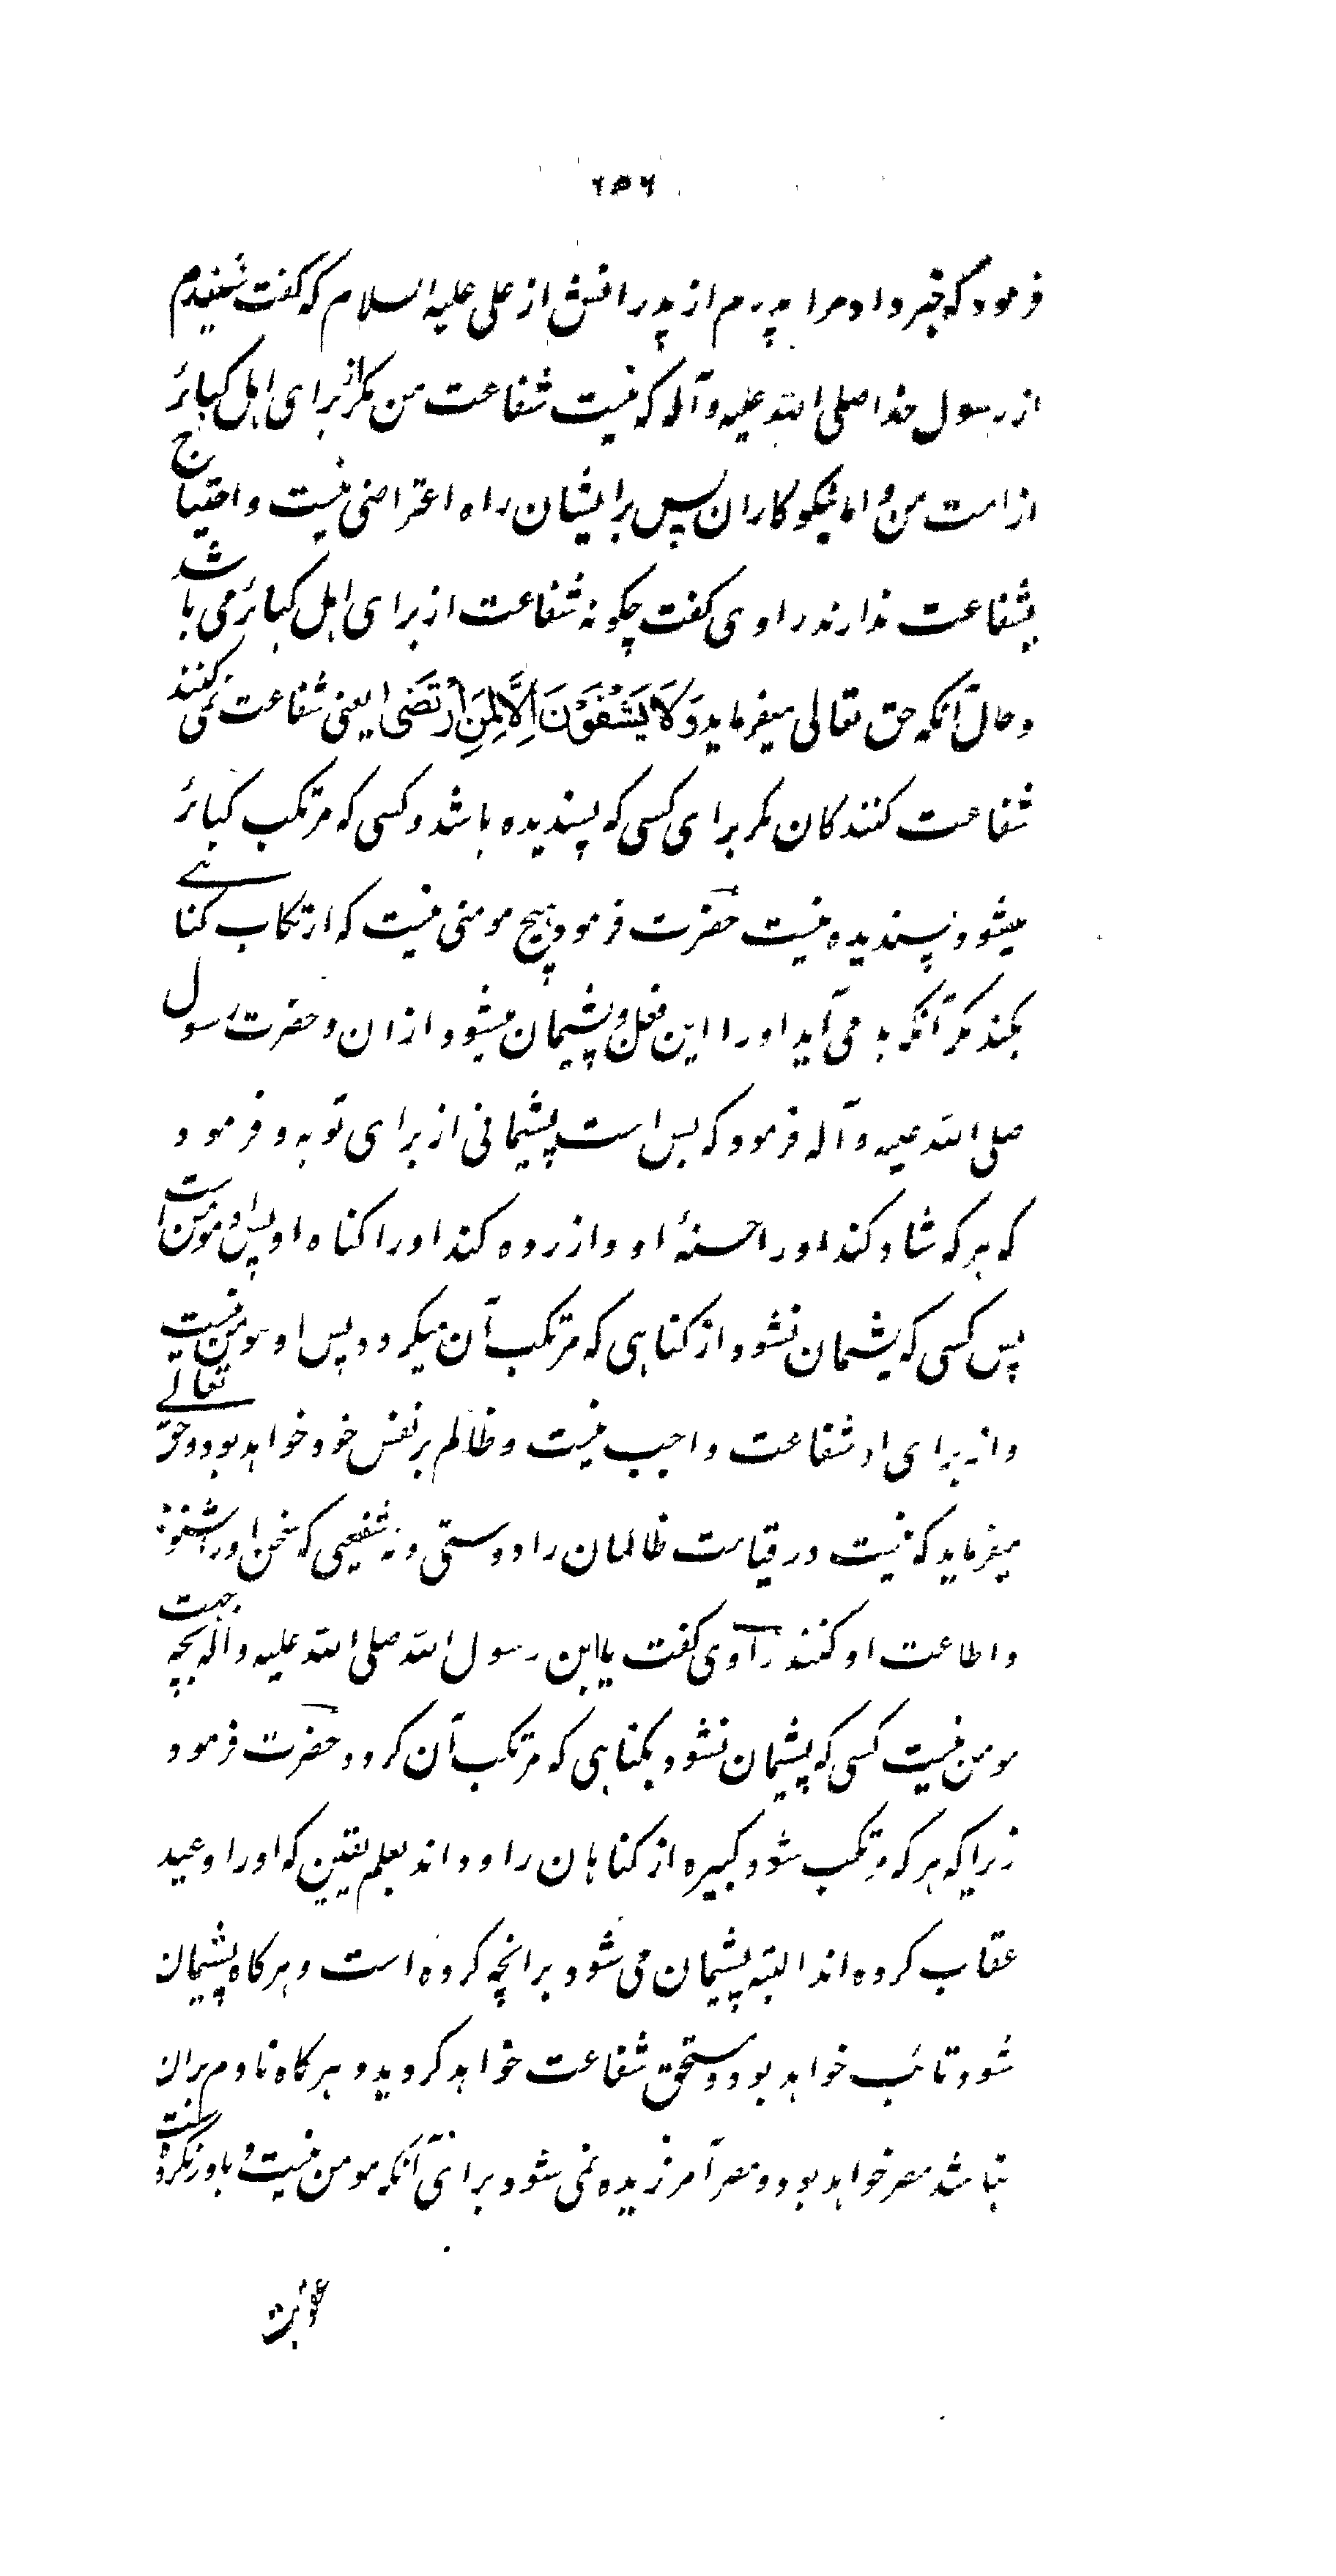 ۲۵۶
فرمود که خبر داد مرا پدرم از پدرانش از علی علیه السلام که گفت شنیدم
از رسول خدا صلی الله علیه وآله که نیست شفاعت من مگر از برای اهل کبائر
از امت من و اما نیکوکاران پس برایشان راه اعتراضی نیست و احتیاج
بشفاعت ندارند راوی گفت چگونه شفاعت از برای اهل کبائر می باشد
و حال آنکه حق تعالی میفرماید وَلَا یَشْفَعُوْنَ اِلَّا لِمَنِ ارْتَضٰی یعنی شفاعت نمی کنند
شفاعت کنندکان مکر برای کسی که پسندیده باشد و کسی که مرتکب کبائر
میشود پسندیده نیست حضرت فرمود هیچ مومنی نیست که ارتکاب کناهی
بکند مکر آنکه بد می آید او را این فعل و پشیمان میشود ازان و حضرت رسول
صلی الله علیه وآله فرمود که بس است پشیمانی از برای توبه و فرمود
که هر که شاد کند او را حسنهٔ او و ازرده کند اورا کناه او پس او مومن است
پس کسی که پشیمان نشود از کناهی که مرتکب آن میکردد پس او مومن نیست
و از برای او شفاعت واجب نیست و ظالم بر نفس خود خواهد بود و حق تعالے
میفرماید که نیست در قیامت ظالمان را دوستی و نه شفیعی که سخن اورا شنوند
و اطاعت او کنند راوی کفت یا ابن رسول الله صلی الله علیه واله بچه جهت
مومن نیست کسی که پشیمان نشود بکناهی که مرتکب آن کردد حضرت فرمود
زیرا که هر که مرتکب شود کبیره از کناهان را و داند بعلم یقین که اورا وعید
عقاب کرده اند البته پشیمان می شود برانچه کرده است و هرکاه پشیمان
شود تائب خواهد بود و مستحق شفاعت خواهد کردید و هرکاه نادم بران
نباشد مصر خواهد بود و مصر آمرزیده نمی شود برای آنکه مومن نیست و باور نکرده است
عقوبت